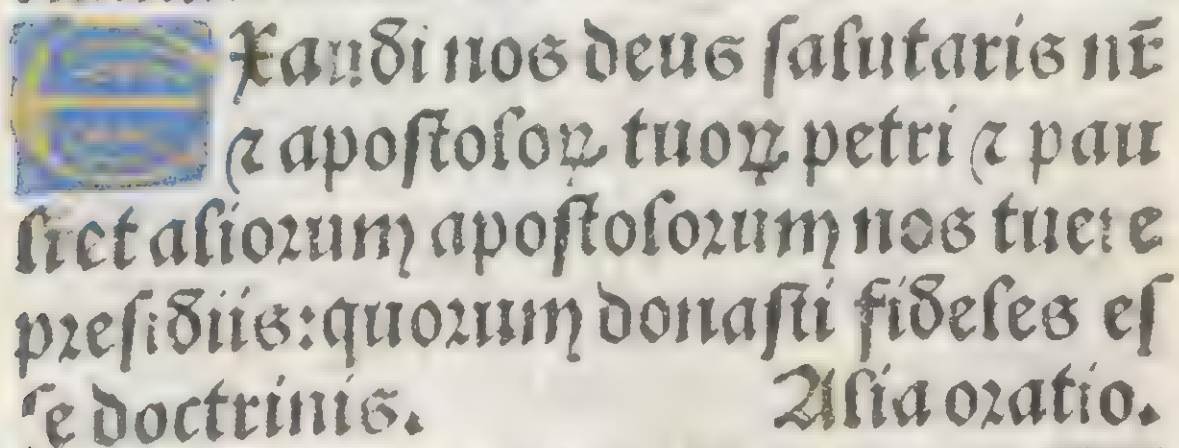 Exaudi nos deus salutaris nr̄
⁊ apostoloꝝ tuoꝝ petri ⁊ pau
li et aliorum apostolorum nos tuere
presidiis: quorum donasti fideles es
se doctrinis. Alia oratio.